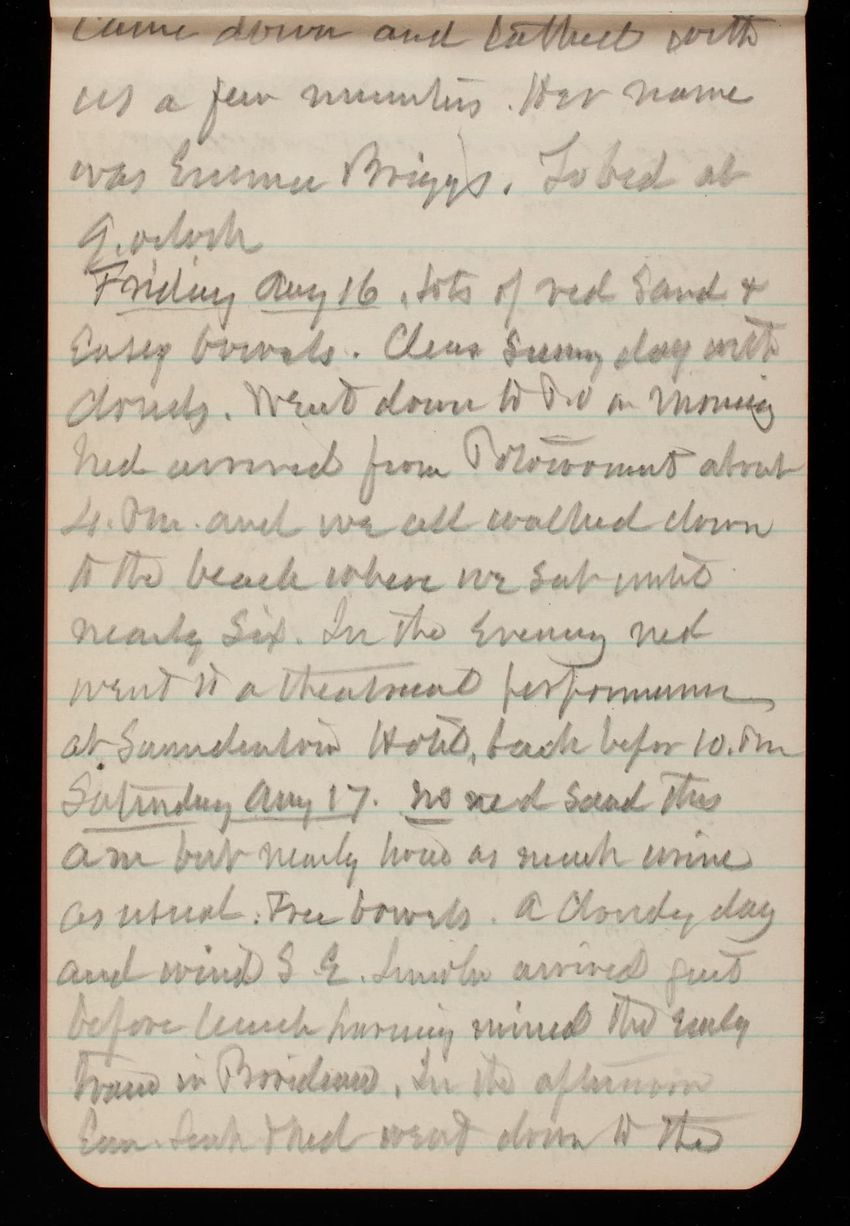 came down and bathed with
us a few minutes. Her name
was Emma Briggs. To bed at
9. oclock
Friday Aug 16. Lots of red Sand &
Easey bowels. Clear Sunny day with
clouds. Went down to P.O in morning
Ned arrived from Potowomut about
4. P.m. and we all walked down
to the beach where we sat until
nearly Six. In the Evening Ned
went to a theatrical performance
at Saunderstown Hotel, back befor 10. Pm
Saturday Aug 17. no red Sand this
am but nearly twice as much urine
as usual. Free bowels. A Cloudy day
and wind S. E. Lincoln arrived just
before lunch having missed the early
train in Providence. In the afternoon
Em. & Ned went down to the